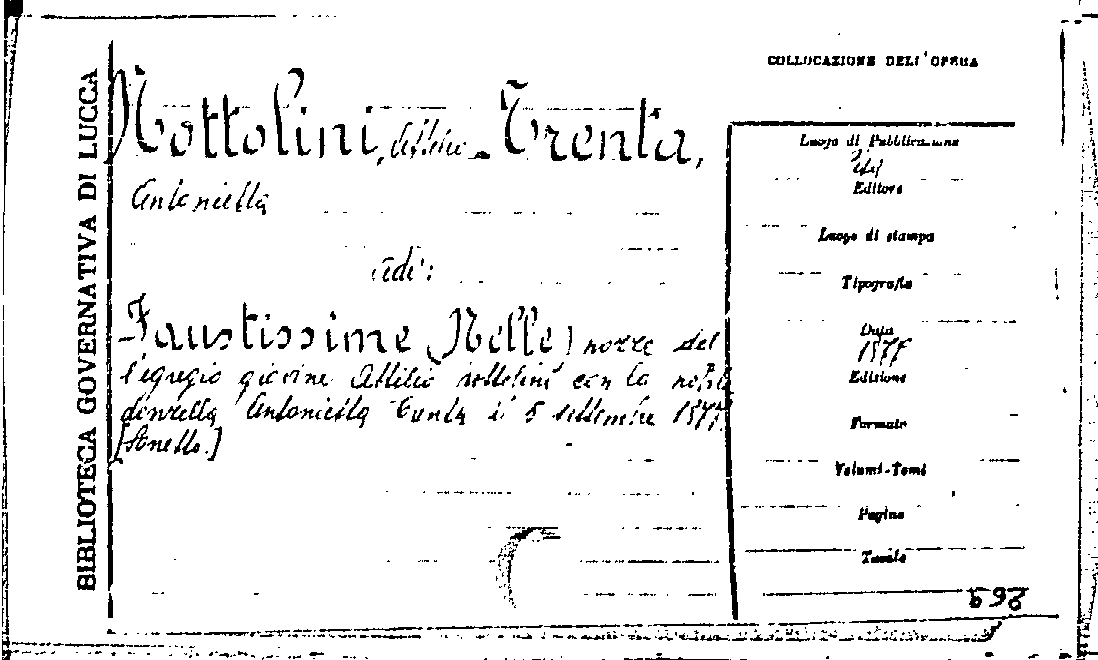 BIBLIOTECA GOVERNATIVA DI LUCCA
COLLOCAZIONE DELL'OPERA
Nottolini, Attilio - Trenta,
Antonietta
vedi:
Faustissime (Nelle) nozze del
l'egregio giovine Attilio Nottolini con la nobile
donzella Antonietta Trenta il 5 settembre 1877
[Sonetto.]
Luogo di Pubblicazione
Editore
Luogo di stampa
Tipografia
Data
1877
Edizione
Formato
Volumi-Tomi
Pagine
Tavole